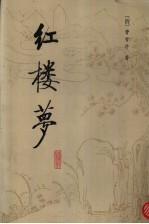 红楼夢
[清] 曹雪芹 著